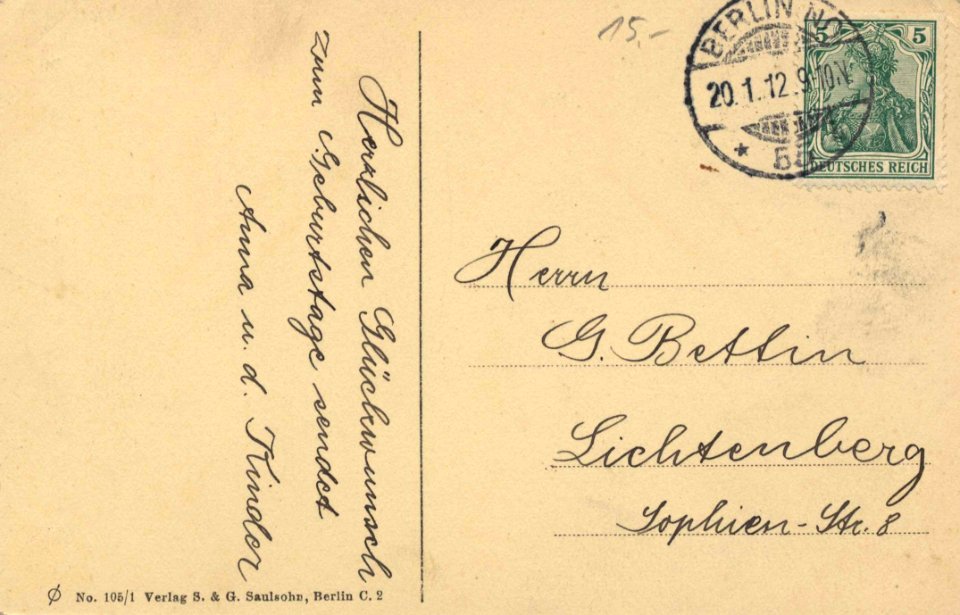 Herzlichen Glückwunsch
zum Geburtstage sendet
Anna u. d. Kinder
No. 105/1 Verlag S. & G. Saulsohn, Berlin C. 2
15.-
BERLIN NO
20.1.12.9-10.N.
* 55
5 5
DEUTSCHES REICH
Herrn
G. Bettin
Lichtenberg
Sophien-Str. 8